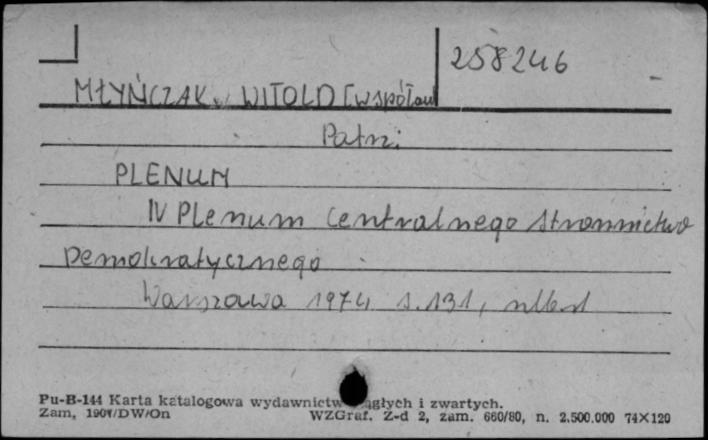 258246
MŁYŃCZAK, WITOLD [współau
Patrz:
PLENUM
IV Plenum Centralnego Stronnictwa
Demokratycznego
Warszawa 1974 s. 131, nlb
Pu-B-144 Karta katalogowa wydawnictw ciągłych i zwartych.
Zam, 1901/DW/On WZGraf. Z-d 2, zam. 660/80, n. 2.500.000 74×120